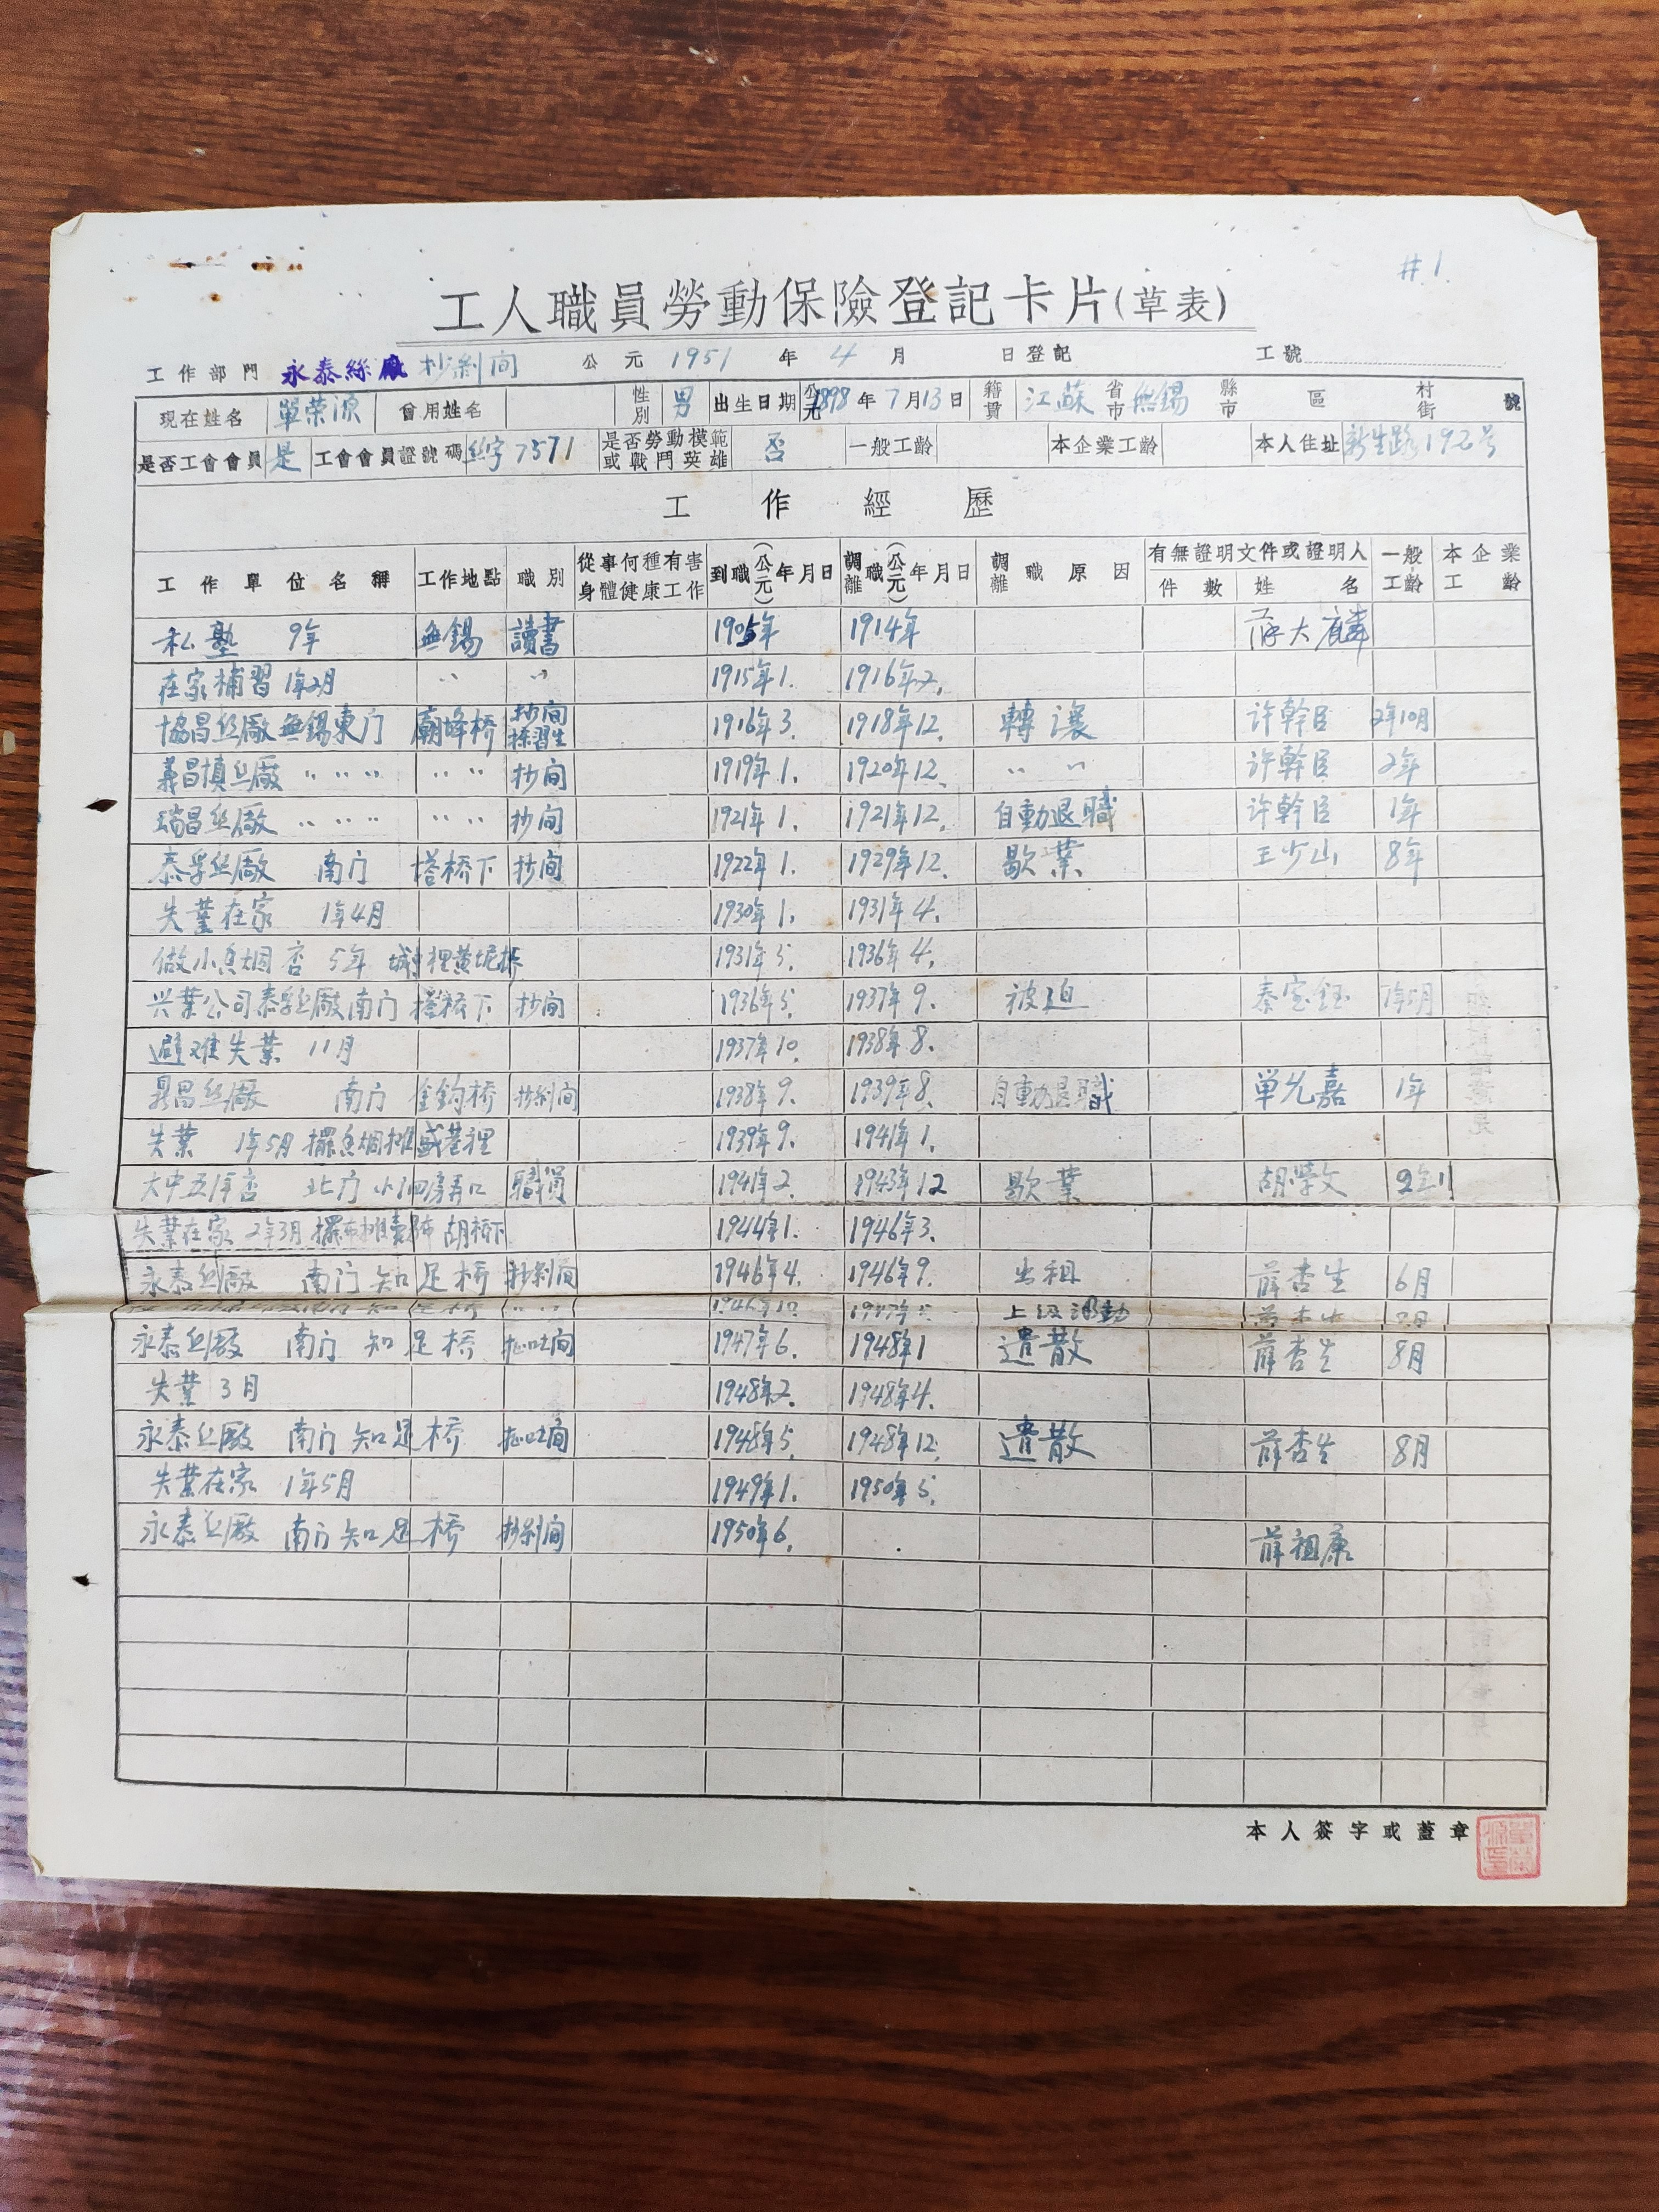 #1
工人職員勞動保險登記卡片(草表)
工作部門 永泰絲廠 抄剝间 公元1951年4月 日登記 工號
現在姓名 單荣源 曾用姓名 性別 男 出生日期 公元1898年7月13日 籍貫 江蘇省市無锡縣市 區 村街 號
是否工會會員 是 工會會員證號碼 丝字7571 是否勞動模範或戰鬥英雄 否 一般工齡 本企業工齡 本人住址 新生路19 号
工作經歷
工作單位名稱 工作地點 職別 從事何種有害身體健康工作 到職(公元)年月日 調離職(公元)年月日 調離職原因 有無證明文件或證明人 件數 姓名 一般工齡 本企業工齡
私塾 9年 無錫 讀書 1905年 1914年 大麟
在家補習1年2月 〃 〃 1915年1. 1916年2.
協昌丝厰 無錫東门 廟 桥 抄间練習生 1916年3. 1918年12. 轉讓 许幹臣 2年10月
義昌慎丝厰 〃 〃 〃 〃 〃 抄间 1919年1. 1920年12. 〃 〃 许幹臣 2年
瑞昌丝厰 〃 〃 〃 〃 〃 抄间 1921年1. 1921年12. 自動退職 许幹臣 1年
泰孚丝厰 南门 塔桥下 抄间 1922年1. 1929年12. 歇業 王少山 8年
失業在家 1年4月 1930年1. 1931年4.
做小魚烟 5年 城中裡黄坭桥 1931年5. 1936年4.
兴業公司泰孚丝厰 南门 塔桥下 抄间 1936年5. 1937年9. 被迫 秦 钰 1年5月
避难失業 11月 1937年10. 1938年8.
鼎昌丝厰 南门 金钩桥 抄剝间 1938年9. 1939年8. 自動退職 单允嘉 1年
失業 1年5月 擺魚烟摊 盛巷裡 1939年9. 1941年1.
大中五洋 北门 小泗房弄口 職員 1941年2. 1943年12 歇業 胡 文 2年11
失業在家 2年3月 擺布摊賣 布 胡桥下 1944年1. 1946年3.
永泰丝厰 南门 知足桥 抄剝间 1946年4. 1946年9. 出租 薛杏生 6月
1946年10. 1947年5. 上级调動
永泰丝厰 南门 知足桥 间 1947年6. 1948年1 遣散 薛杏生 8月
失業 3月 1948年2. 1948年4.
永泰丝厰 南门 知足桥 间 1948年5. 1948年12. 遣散 薛杏生 8月
失業在家 1年5月 1949年1. 1950年5.
永泰丝厰 南门 知足桥 抄剝间 1950年6. 薛祖康
本人簽字或蓋章